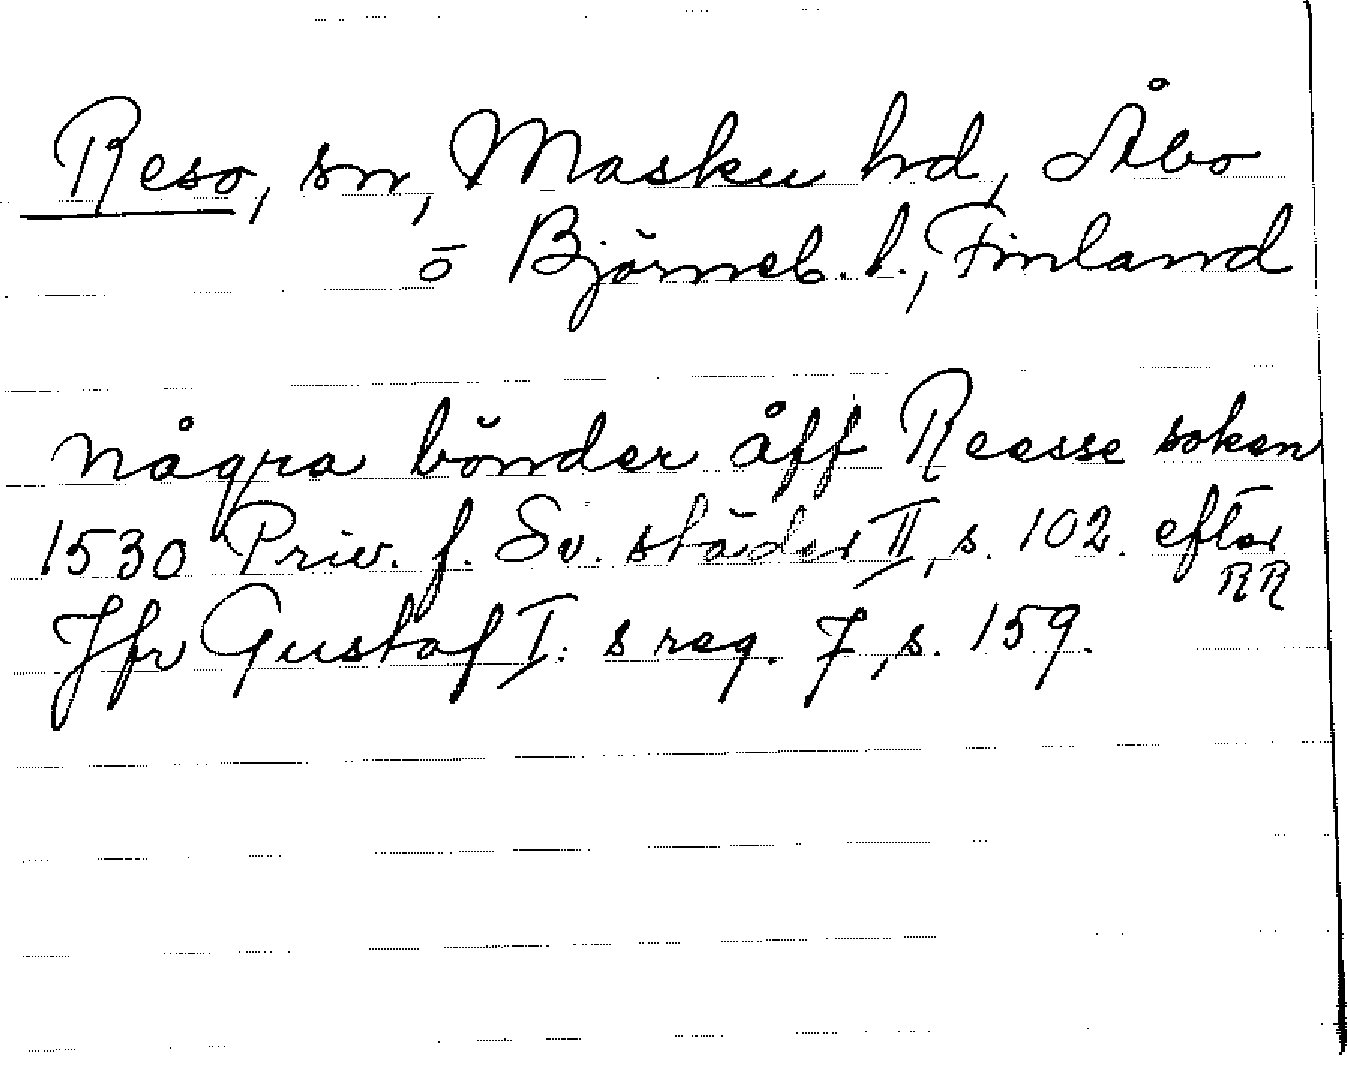 Reso, sn, Masku hd, Åbo
o Björneb. l., Finland
några bönder åff Reesse soken
1530 Priv. f. Sv. städer II, s. 102. efter
RR
Jfr Gustaf I: s reg. 7, s. 159.